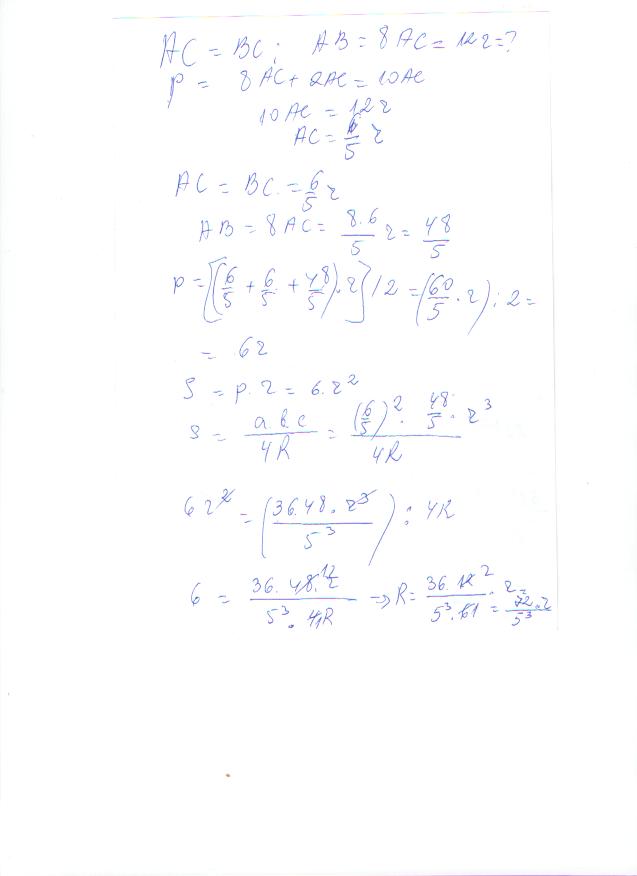 AC = BC; AB = 8AC = 12r = ?
P = 8AC + 2AC = 10AC
10AC = 12r
AC = 6/5 r
AC = BC = 6/5 r
AB = 8AC = 8.6/5 r = 48/5
p = [(6/5 + 6/5 + 48/5).r]/2 = (60/5 . r) : 2 =
= 6r
S = p.r = 6.r²
S = a.b.c/4R = (6/5)² . 48/5 . r³/4R
6r² = (36.48.r³/5³) : 4R
6 = 36.48.12 r/5³ . 4R => R = 36.12 2/5³.61 . r = = 72/5³ . r